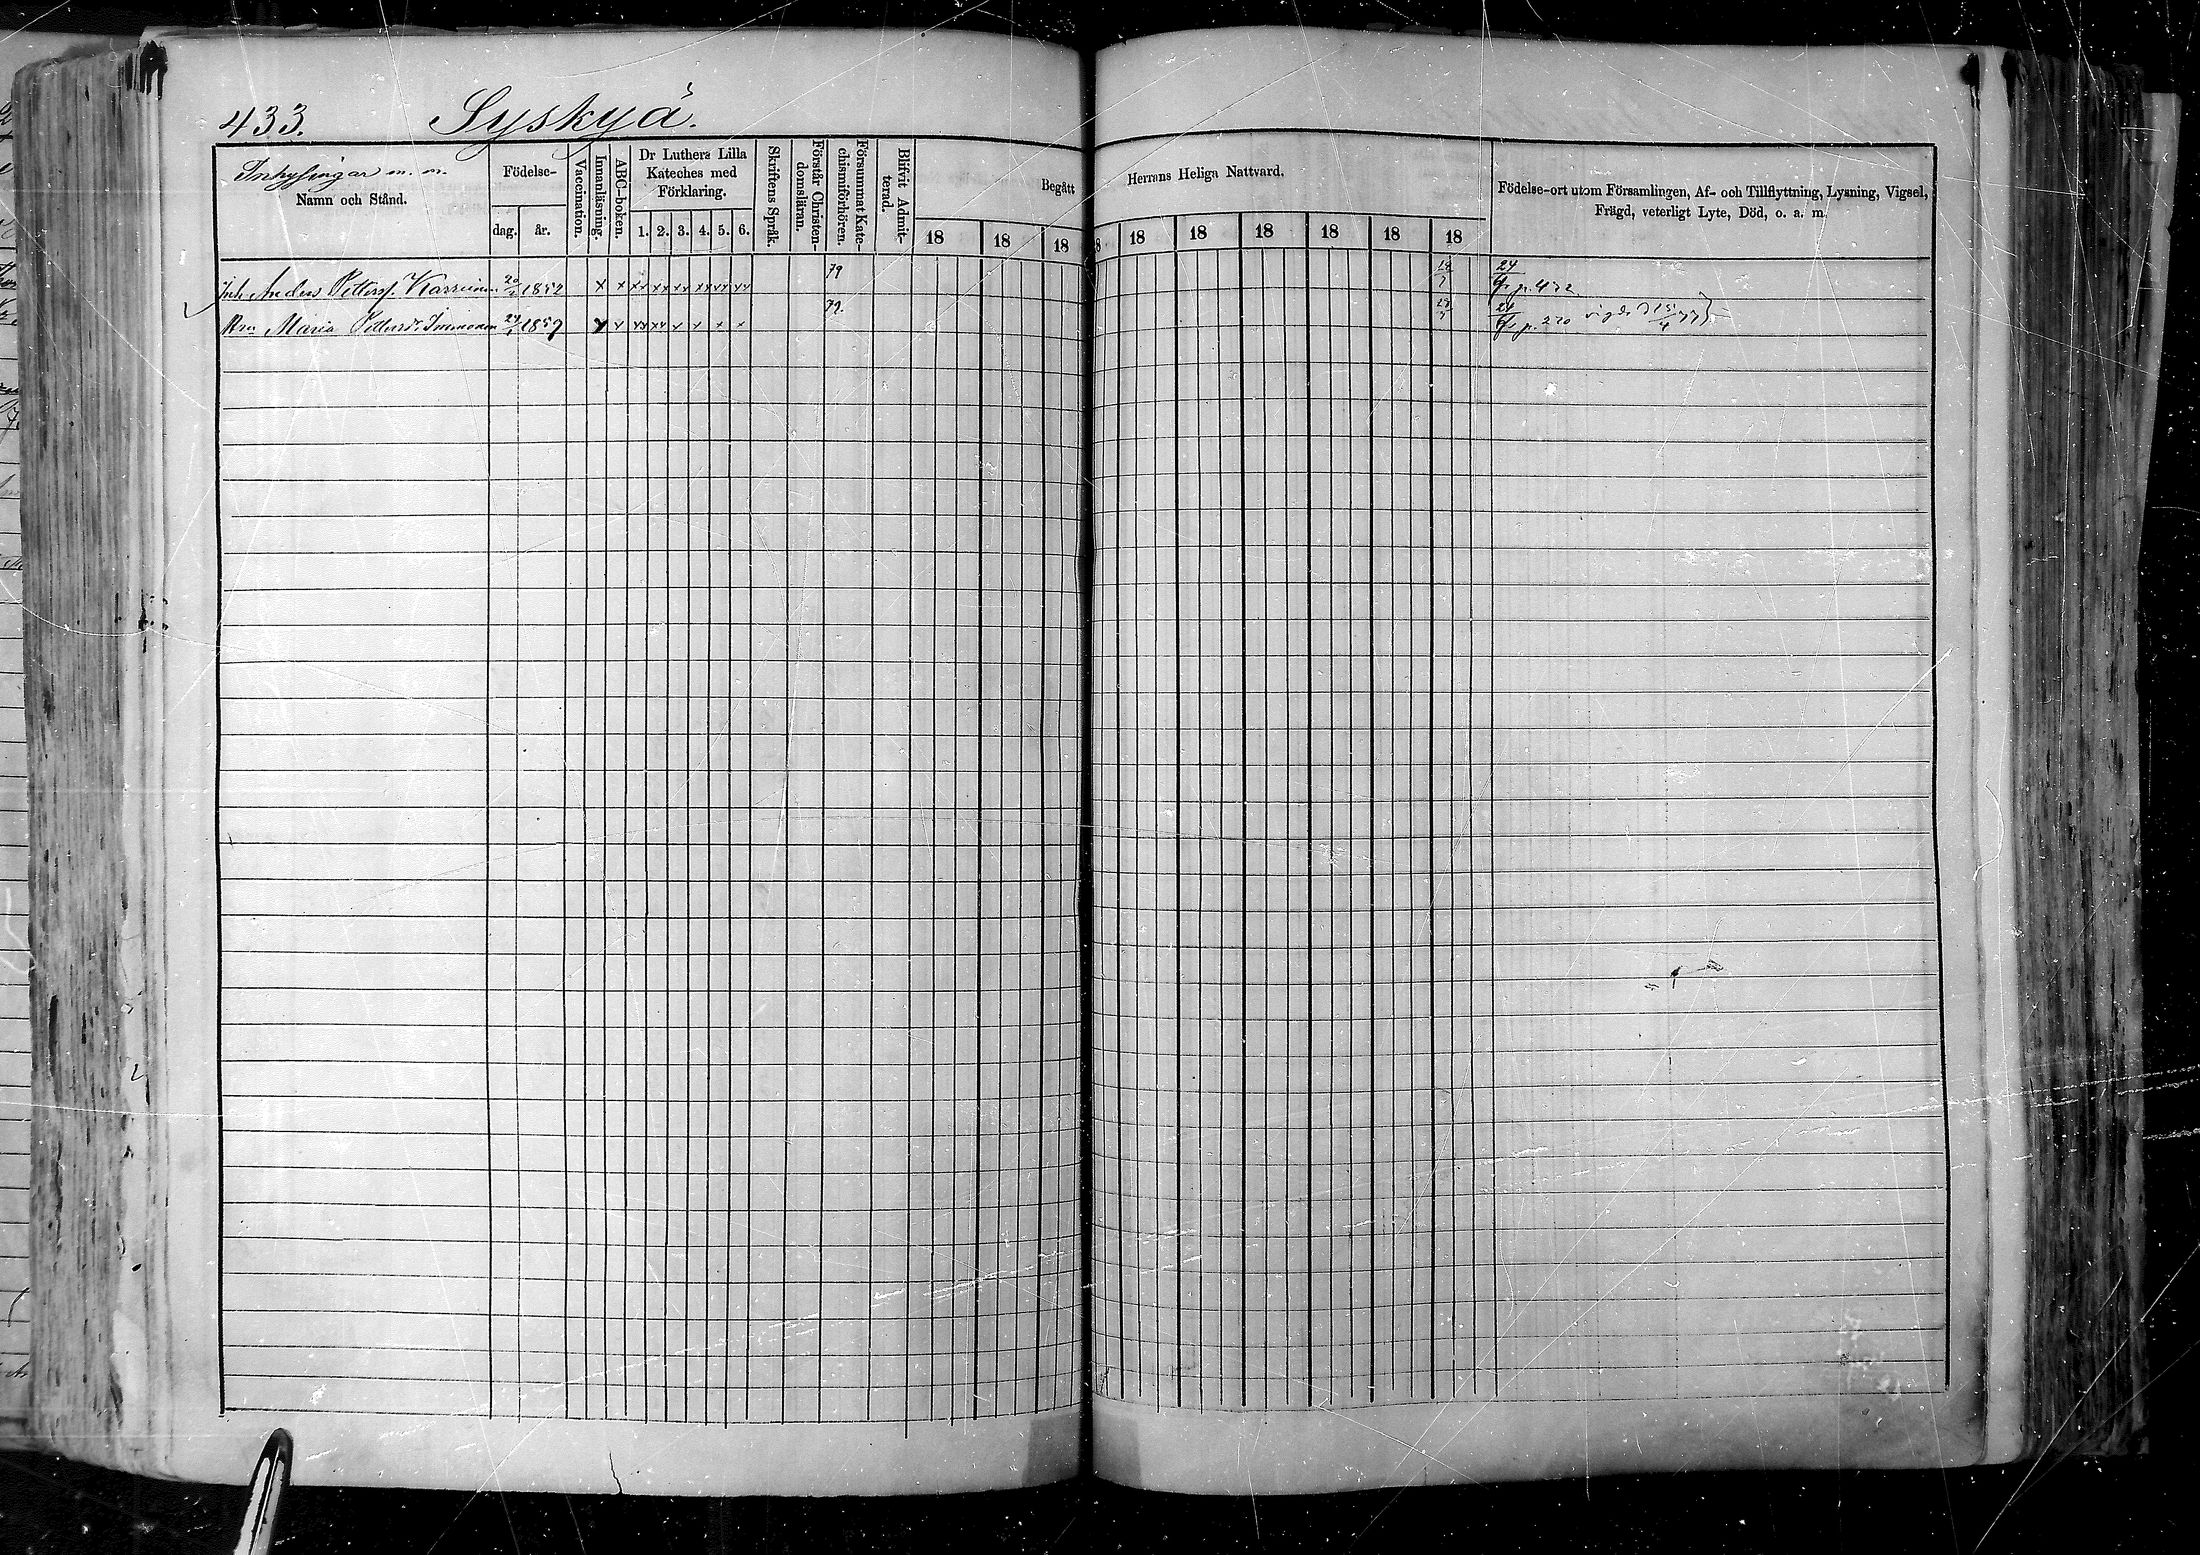 433. Syskyä.
Inhysingar m. m.
Namn och Stånd.
Födelse-
dag. år.
Vaccination.
Innanläsning.
ABC-boken.
Dr Luthers Lilla
Kateches med
Förklaring.
1. 2. 3. 4. 5. 6.
Skriftens Språk.
Förstår Christen-
domsläran.
Försummat Kate-
chismiförhören.
Blifvit Admit-
terad.
Begått Herrans Heliga Nattvard.
18 18 18 18 18 18 18 18 18 18
Födelse-ort utom Församlingen, Af- och Tillflyttning, Lysning, Vigsel,
Frägd, veterligt Lyte, Död, o. a. m.
Inh Anders Petterss. 20 x x xx xx xx xx xx xx 79 24 p. 432
Maria Pettersd. Immonen 24 1857 x x xx xx x x x x 79. 24 p. 220 vigde 15/4 77